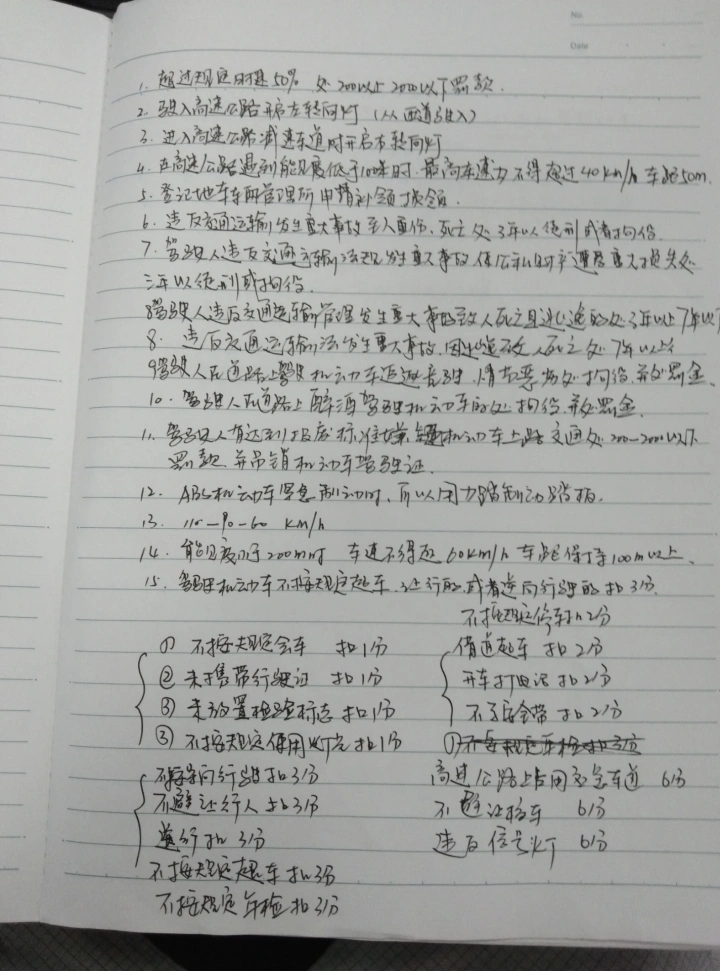 No.
Date
1. 超过规定时速50% 处200以上2000以下罚款.
2. 驶入高速公路开启左转向灯 (从匝道驶入)
3. 进入高速公路减速车道时开启右转向灯
4. 在高速公路遇到能见度低于100米时.最高车速力不得超过40km/h 车距50m.
5. 登记地车车辆管理所申请补领换领.
6. 违反交通运输发生重大事故至人重伤、死亡处3年以徒刑或者拘役.
7. 驾驶人违反交通运输法规发生重大事故使公私财产遭受重大损失处
三年以徒刑或拘役.
8驾驶人违反交通运输管理发生重大事故致人死亡且逃逸的处3年以上7年以下
8. 违反交通运输法发生重大事故,因逃逸致人死亡处7年以上
9驾驶人在道路上驾驶机动车追逐竞驶,情节恶劣处拘役,并处罚金.
10. 驾驶人在道路上醉酒驾驶机动车的处拘役,并处罚金.
11. 驾驶人有达到报废标准机动车上路交通处200-2000以下
罚款 并吊销机动车驾驶证.
12. ABS机动车紧急制动时,可以用力踏制动踏板.
13. 110-90-60 km/h
14. 能见度小于200m时 车速不得超60km/h 车距保持100m以上.
15. 驾驶机动车不按规定超车.让行的,或者逆向行驶的扣3分.
不按规定停车扣2分
① 不按规定会车 扣1分
② 未携带行驶证 扣1分
③ 未放置检验标志扣1分
③ 不按规定使用灯光扣1分
借道超车 扣2分
开车打电话 扣2分
不系安全带 扣2分
不按导向行驶扣3分
不避让行人 扣3分
逆行扣 3分
不按规定超车扣3分
不按规定年检扣3分
高速公路上占用应急车道 6分
不避让校车 6分
违反信号灯 6分